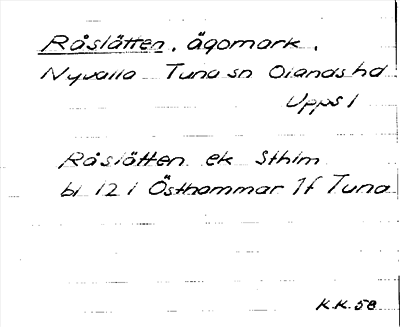 Råslätten, ägomark,
Nyvalla Tuna sn Olands hd
Upps l
Råslätten ek Sthlm
bl 12 i Östhammar 1f Tuna
K.K. 58